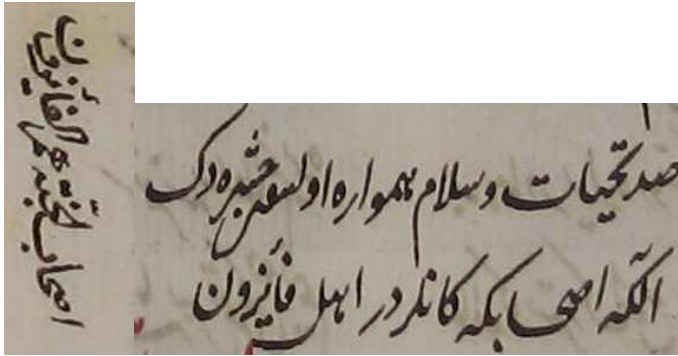 اصحاب الجنة هم الفائزون
صد تحيات وسلام همواره اولسون حشره دك
آلكه اصحابكه كانلر در اهل فائزون